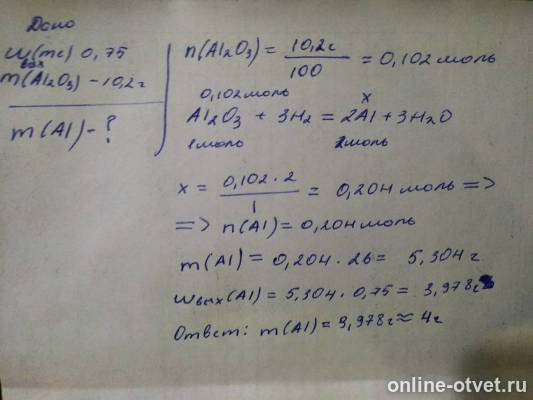 Дано
ω вых (me) 0,75
m(Al₂O₃) - 10,2г
m(Al) - ?
n(Al₂O₃) = 10,2г / 100 = 0,102 моль
0,102 моль x
Al₂O₃ + 3H₂ = 2Al + 3H₂O
1 моль 2 моль
x = 0,102 · 2 / 1 = 0,204 моль =>
=> n(Al) = 0,204 моль
m(Al) = 0,204 · 26 = 5,304 г
ω вых (Al) = 5,304 · 0,75 = 3,978г
Ответ: m(Al) = 3,978г ≈ 4г
online-otvet.ru